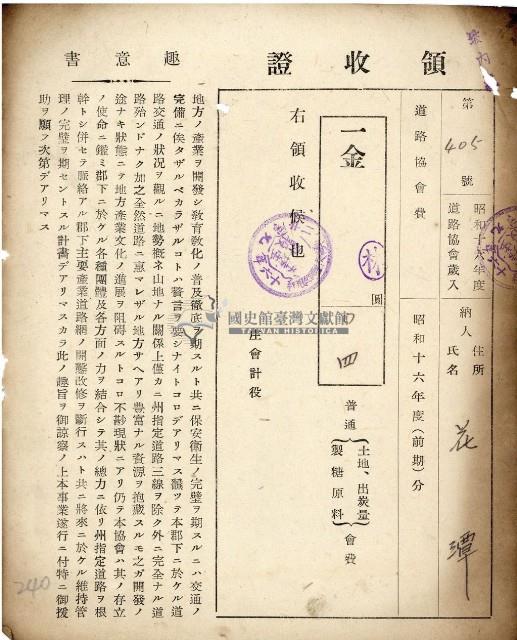 領收證
第405號
昭和十六年度
道路協會歲入
納人
住所
氏名
花潭
道路協會費
昭和十六年度(前期)分
一金
圓
四
普通
土地、出炭量
製糖原料
會費
右領收候也
會計役
國史館臺灣文獻館
TAIWAN HISTORICA
趣意書
地方ノ產業ヲ開發シ敎育敎化ノ普及徹底ヲ期スルト共ニ保安衞生ノ完璧ヲ期スルニハ交通ノ
完備ニ俟タザルベカラザルコトハ贅言ヲ要シナイトコロデアリマス飜ツテ本郡下ニ於ケル道
路交通ノ狀況ヲ觀ルニ地勢槪ネ山地ナル關係上僅カニ州指定道路三線ヲ除ク外ニ完全ナル道
路殆ンドナク加之全然道路ニ惠マレザル地方サヘアリ豐富ナル資源ヲ抱藏スルモ之ガ開發ノ
途ナキ狀態ニテ地方產業文化ノ進展ヲ阻碍スルトコロ不尠現狀ニアリ仍テ本協會ハ其ノ存立
ノ使命ニ鑑ミ郡下ニ於ケル各種團體及各方面ノ力ヲ結合シテ其ノ總力ニ依リ州指定道路ヲ根
幹トシ併セテ脈絡アル郡下主要產業道路網ノ開鑿改修ヲ斷行スハト共ニ將來ニ於ケル維持管
理ノ完璧ヲ期セントスル計畫デアリマスカラ此ノ趣旨ヲ御諒察ノ上本事業遂行ニ付特ニ御援
助ヲ願フ次第デアリマス
240